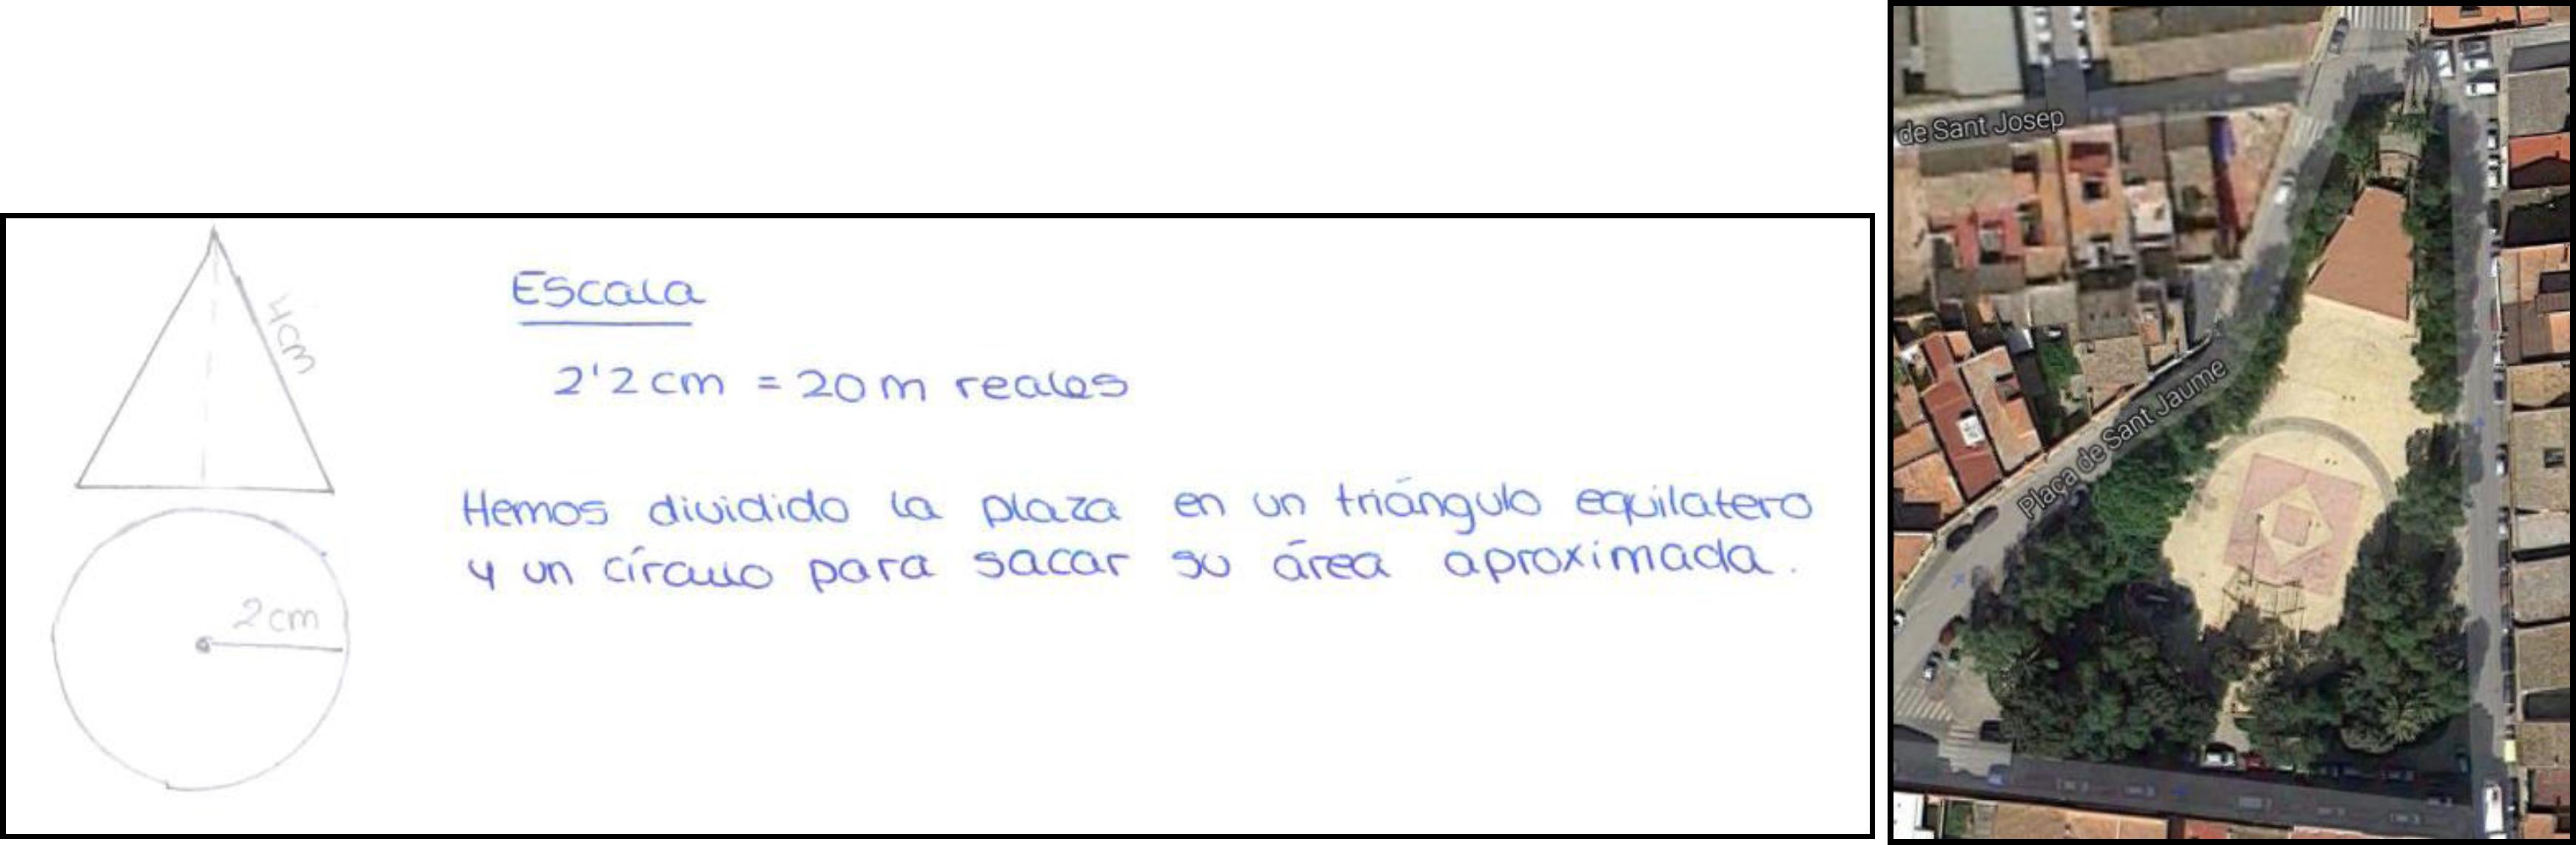 4cm
Escala
2'2 cm = 20 m reales
Hemos dividido la plaza en un triángulo equilatero
y un círculo para sacar su área aproximada.
2cm
de Sant Josep
Plaça de Sant Jaume